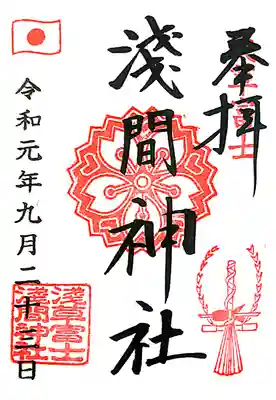 奉拝
淺間神社
令和元年九月二十三日
淺草富士
淺間神社